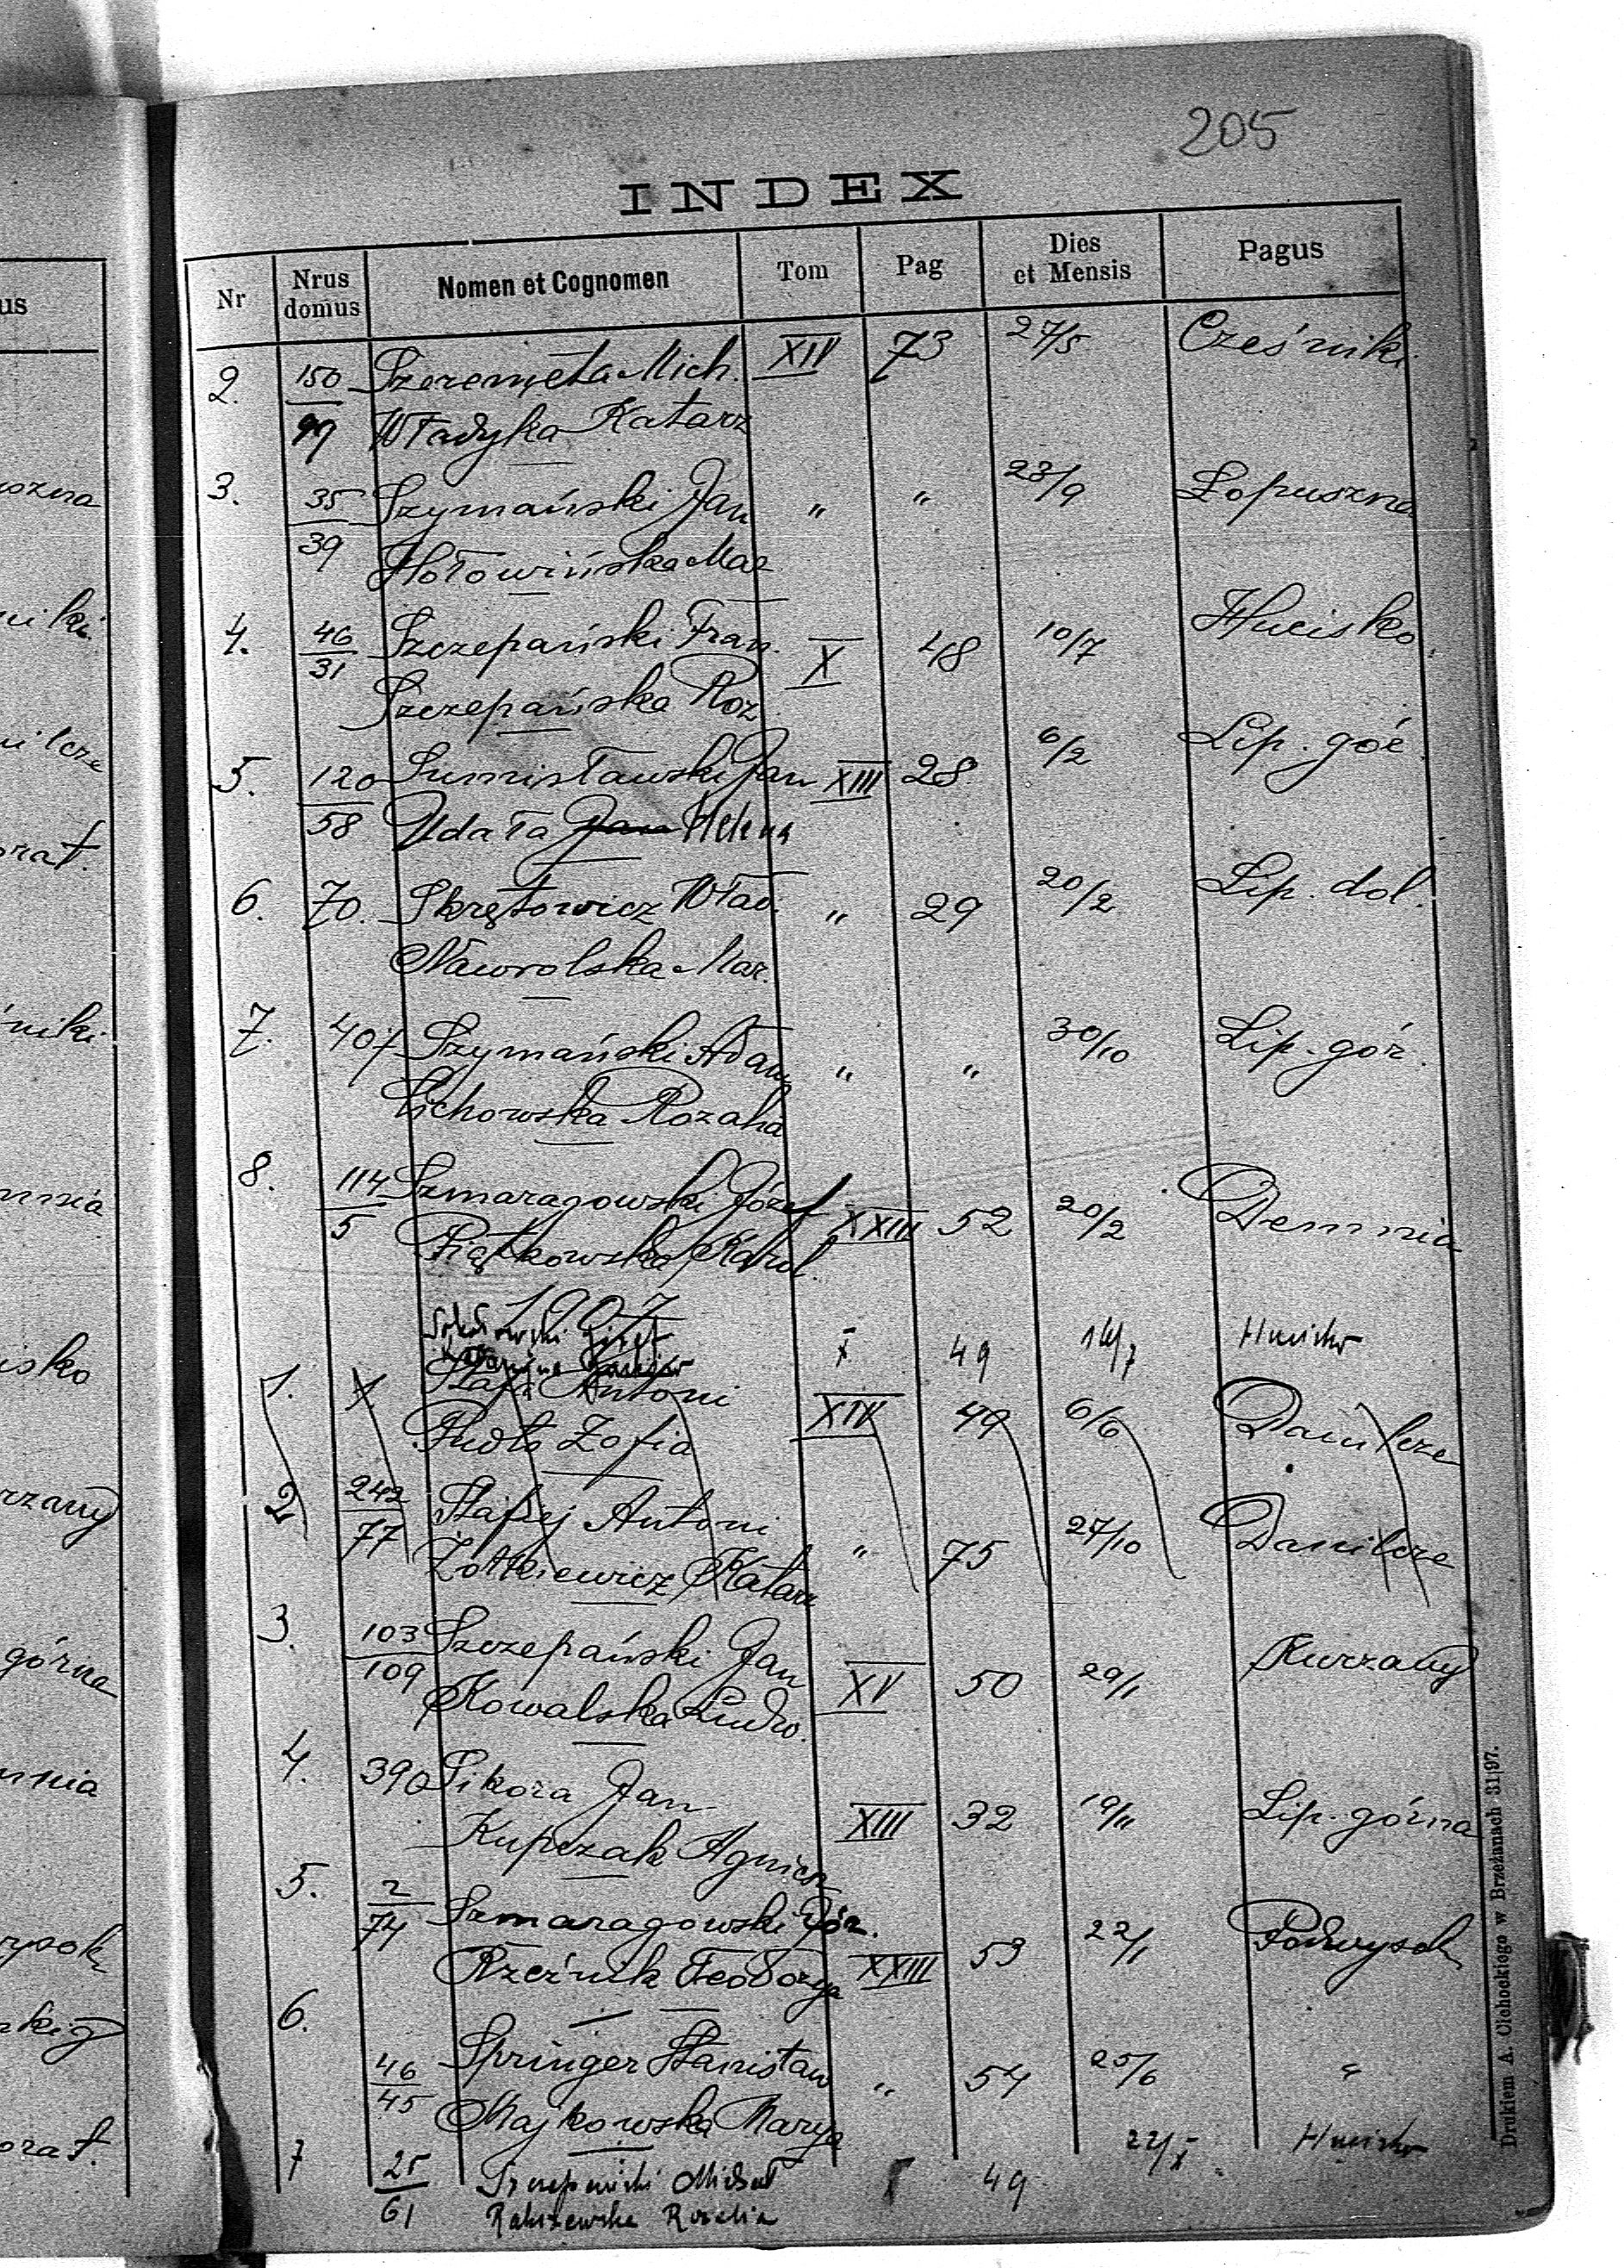 205
INDEX
Nr Nrus domus Nomen et Cognomen Tom Pag Dies et Mensis Pagus
2. 150/99 Szeremęta Mich. XIV 73 27/5 Cześniki
Władyka Katarz
3. 35/39 Szymański Jan " " 23/9 Łopuszna
Hołowińska Mar
4. 46/31 Szczepański Fran. X 48 10/7 Hucisko
Szczepańska Roz
5. 120/58 Sumisławski Jan XIII 28 6/2 Lip. gór
Udała Jan Helena
6. 70. Skrętowicz Wład. " 29 20/2 Lip. dol.
Nawrolska Mar.
7. 407 Szymański Adam " " 30/10 Lip. gór.
Cichowska Rozalia
8. 114/5 Szmaragowski Józef XXIII 52 20/2 Demnia
Piątkowska Karol.
1907
Sokołowski Józef X 49 14/7 Hucisko
1. Antoni XIV 49 6/6 Danilcze
Pudło Zofia
2 242/77 Antoni " 75 27/10 Danilcze
Żółkiewicz Katarz
3. 103/109 Szczepański Jan XV 50 29/1 Kurzany
Kowalska Ludw.
4. 390 Sikora Jan XIII 32 19/11 Lip. górna
Kupczak Agniesz
5. 2/74 Szmaragowski Józ. XXIII 53 22/1 Podwysok
Rzeźnik Teodozya
6. 46/45 Springer Stanisław " 54 25/6 "
Majkowska Marya
7 25/61 Szczepański Michał 49 22/X Hucisko
Rakszewska Rozalia
us
niki
orat.
isko
górna
orat.
Drukiem A. Cichockiego w Brzeżanach 31|97.